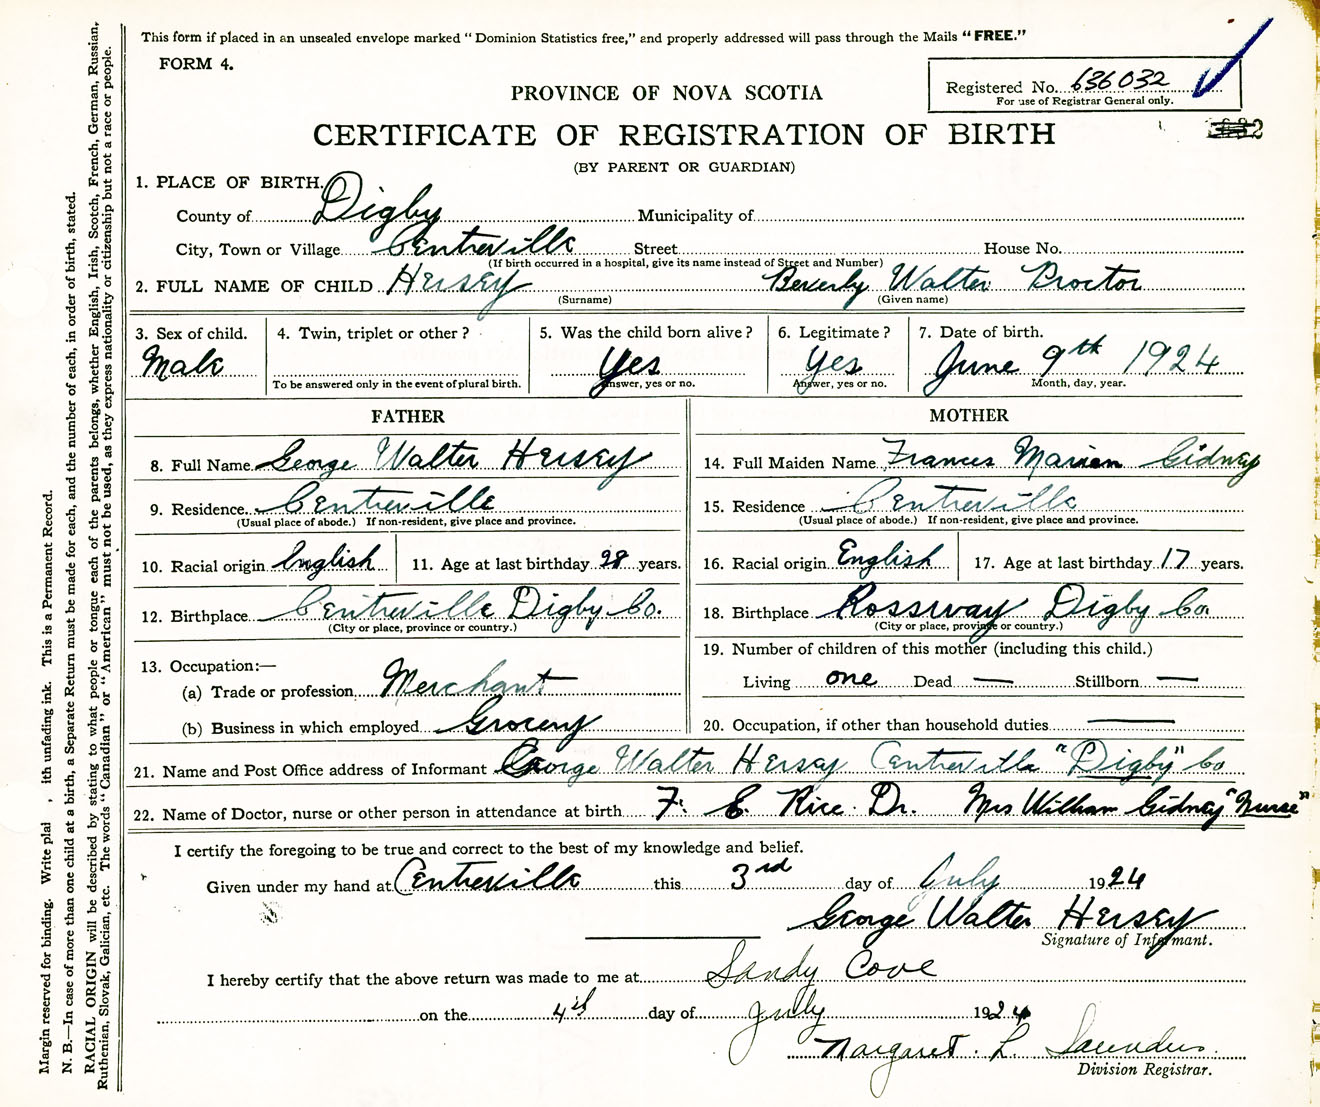 This form if placed in an unsealed envelope marked "Dominion Statistics free," and properly addressed will pass through the Mails "FREE."
FORM 4.
Registered No. 636032
For use of Registrar General only.
PROVINCE OF NOVA SCOTIA
CERTIFICATE OF REGISTRATION OF BIRTH
(BY PARENT OR GUARDIAN)
1. PLACE OF BIRTH.
County of Digby Municipality of
City, Town or Village Centreville Street House No.
(If birth occurred in a hospital, give its name instead of Street and Number)
2. FULL NAME OF CHILD Hersey Beverly Walter Proctor
(Surname) (Given name)
3. Sex of child. 4. Twin, triplet or other? 5. Was the child born alive? 6. Legitimate? 7. Date of birth.
Male Yes Yes June 9th 1924
To be answered only in the event of plural birth. Answer, yes or no. Answer, yes or no. Month, day, year.
FATHER MOTHER
8. Full Name George Walter Hersey 14. Full Maiden Name Frances Marion Gidney
9. Residence Centreville 15. Residence Centreville
(Usual place of abode.) If non-resident, give place and province. (Usual place of abode.) If non-resident, give place and province.
10. Racial origin English 11. Age at last birthday 28 years. 16. Racial origin English 17. Age at last birthday 17 years.
12. Birthplace Centreville Digby Co. 18. Birthplace Rossway Digby Co.
(City or place, province or country.) (City or place, province or country.)
13. Occupation:— 19. Number of children of this mother (including this child.)
(a) Trade or profession Merchant Living one Dead — Stillborn —
(b) Business in which employed Grocery 20. Occupation, if other than household duties ——
21. Name and Post Office address of Informant George Walter Hersey Centreville "Digby" Co
22. Name of Doctor, nurse or other person in attendance at birth F. E. Rice Dr. Mrs William Gidney "Nurse"
I certify the foregoing to be true and correct to the best of my knowledge and belief.
Given under my hand at Centreville this 3rd day of July 1924
George Walter Hersey
Signature of Informant.
I hereby certify that the above return was made to me at Sandy Cove
on the 4th day of July 1924
Margaret L. Saunders
Division Registrar.
Margin reserved for binding. Write plai , ith unfading ink. This is a Permanent Record.
N. B.—In case of more than one child at a birth, a Separate Return must be made for each, and the number of each, in order of birth, stated.
RACIAL ORIGIN will be described by stating to what people or tongue each of the parents belongs, whether English, Irish, Scotch, French, German, Russian,
Ruthenian, Slovak, Galician, etc. The words "Canadian" or "American" must not be used, as they express nationality or citizenship but not a race or people.